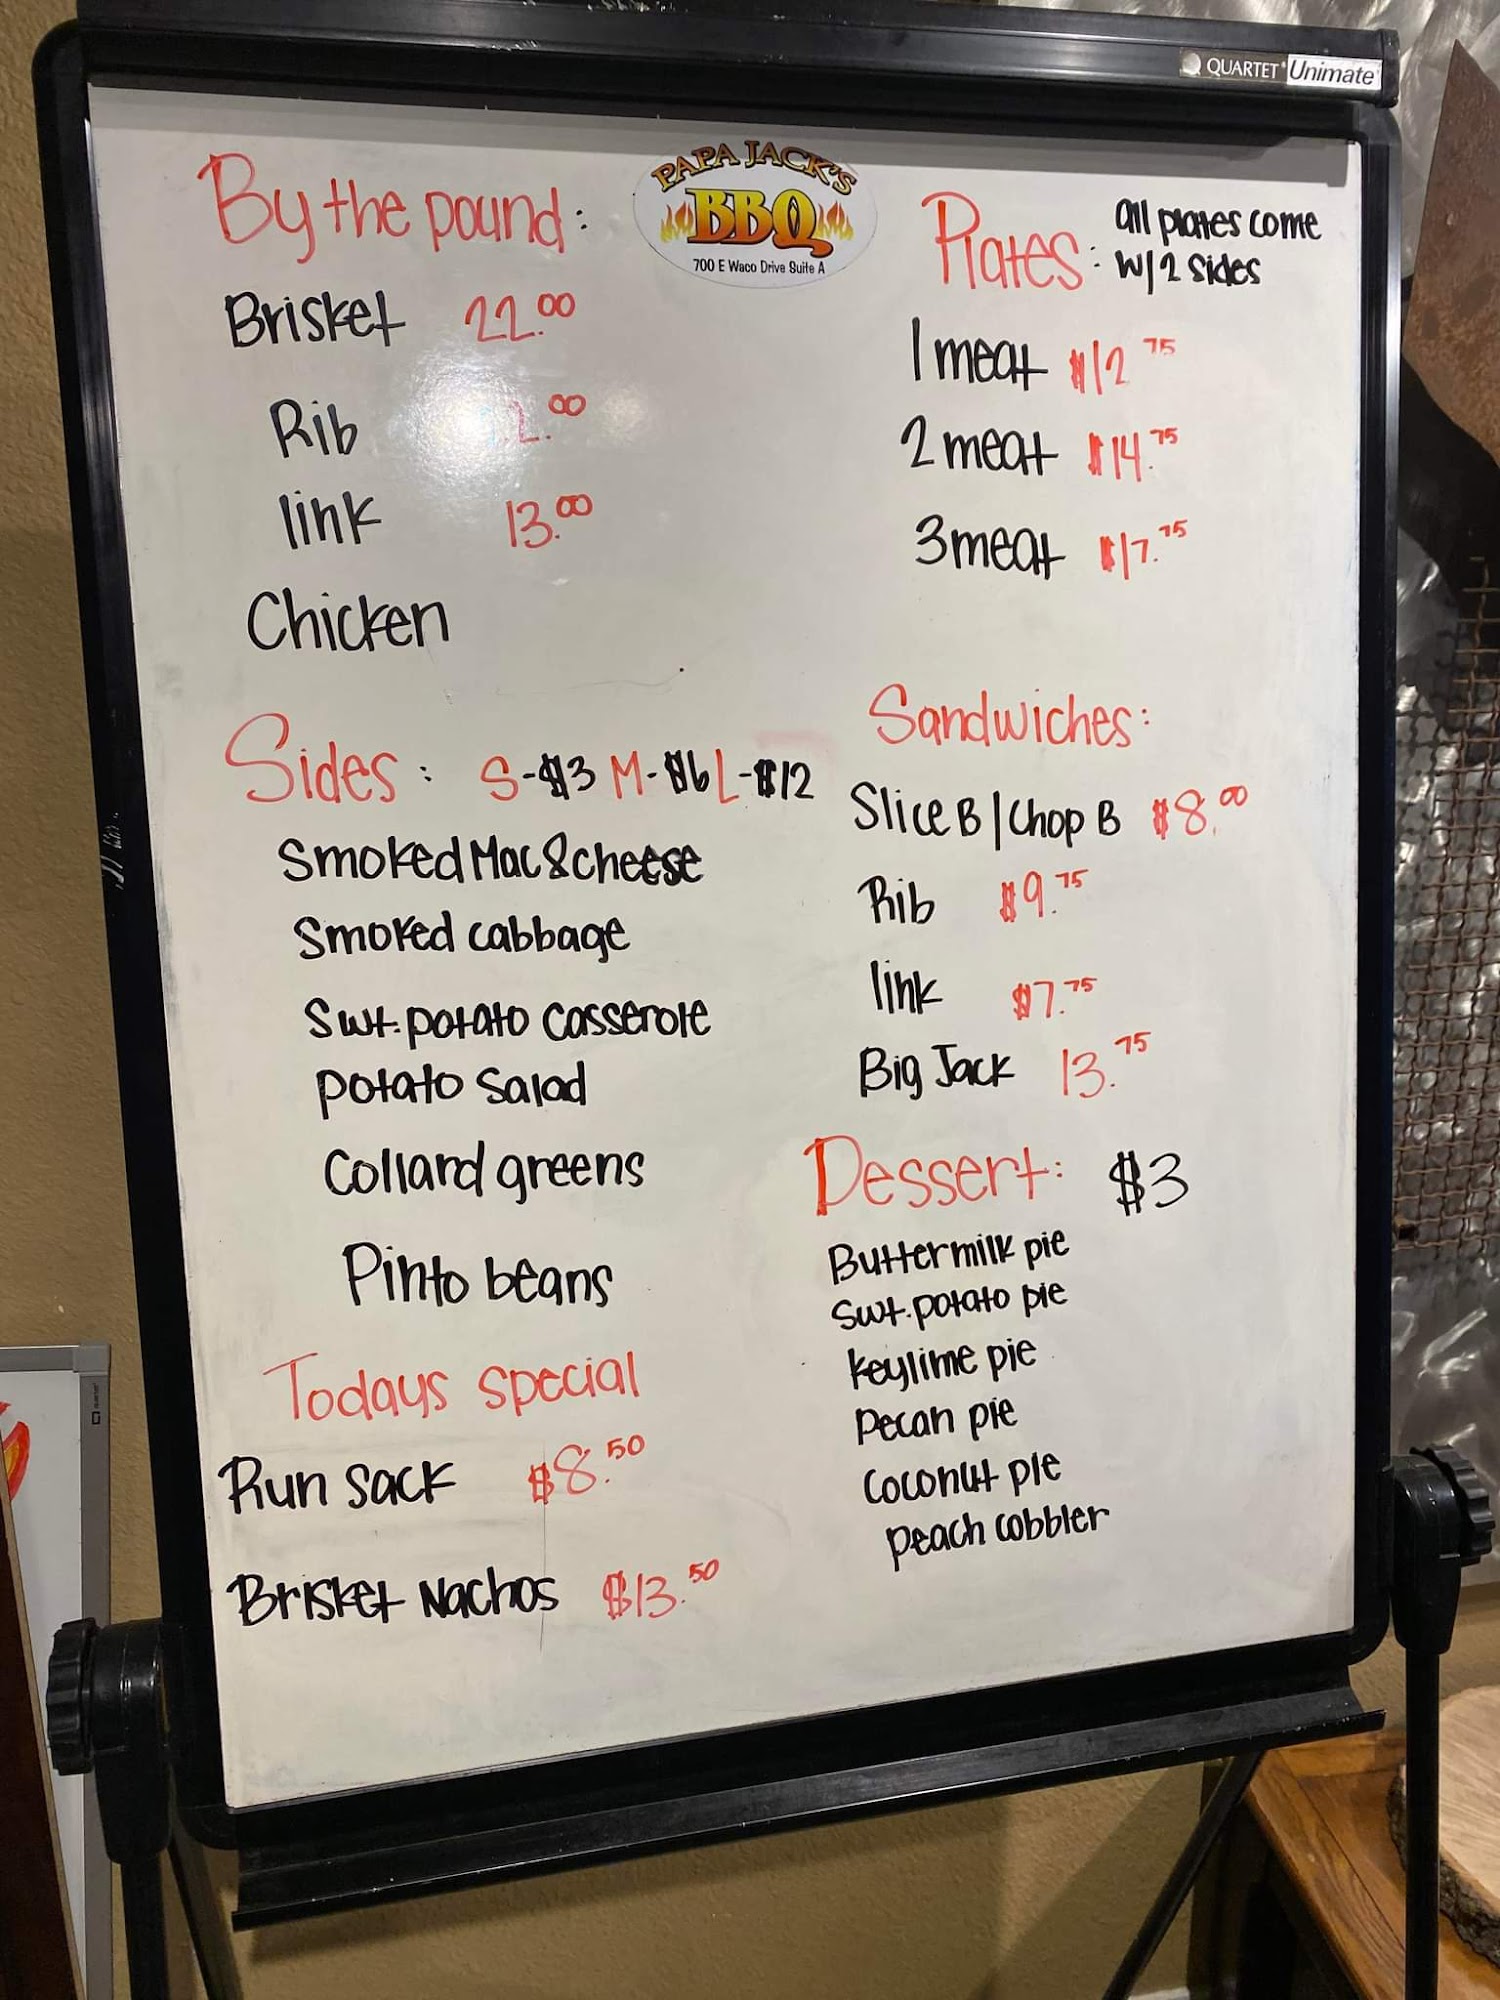 QUARTET® Unimate
PAPA JACK'S
BBQ
700 E Waco Drive Suite A
By the pound:
Brisket 22.00
Rib
link 13.00
Chicken
Sides: S-$3 M-$6 L-$12
Smoked Mac & cheese
Smoked cabbage
Swt. potato casserole
Potato Salad
Collard greens
Pinto beans
Todays special
Run Sack $8.50
Brisket Nachos $13.50
Plates: all plates come
w/2 sides
1 meat $12 75
2 meat $14.75
3 meat $17.75
Sandwiches:
Slice B/Chop B $8.00
Rib $9.75
link $7.75
Big Jack 13.75
Dessert: $3
Buttermilk pie
Swt. potato pie
keylime pie
Pecan pie
Coconut pie
peach cobbler